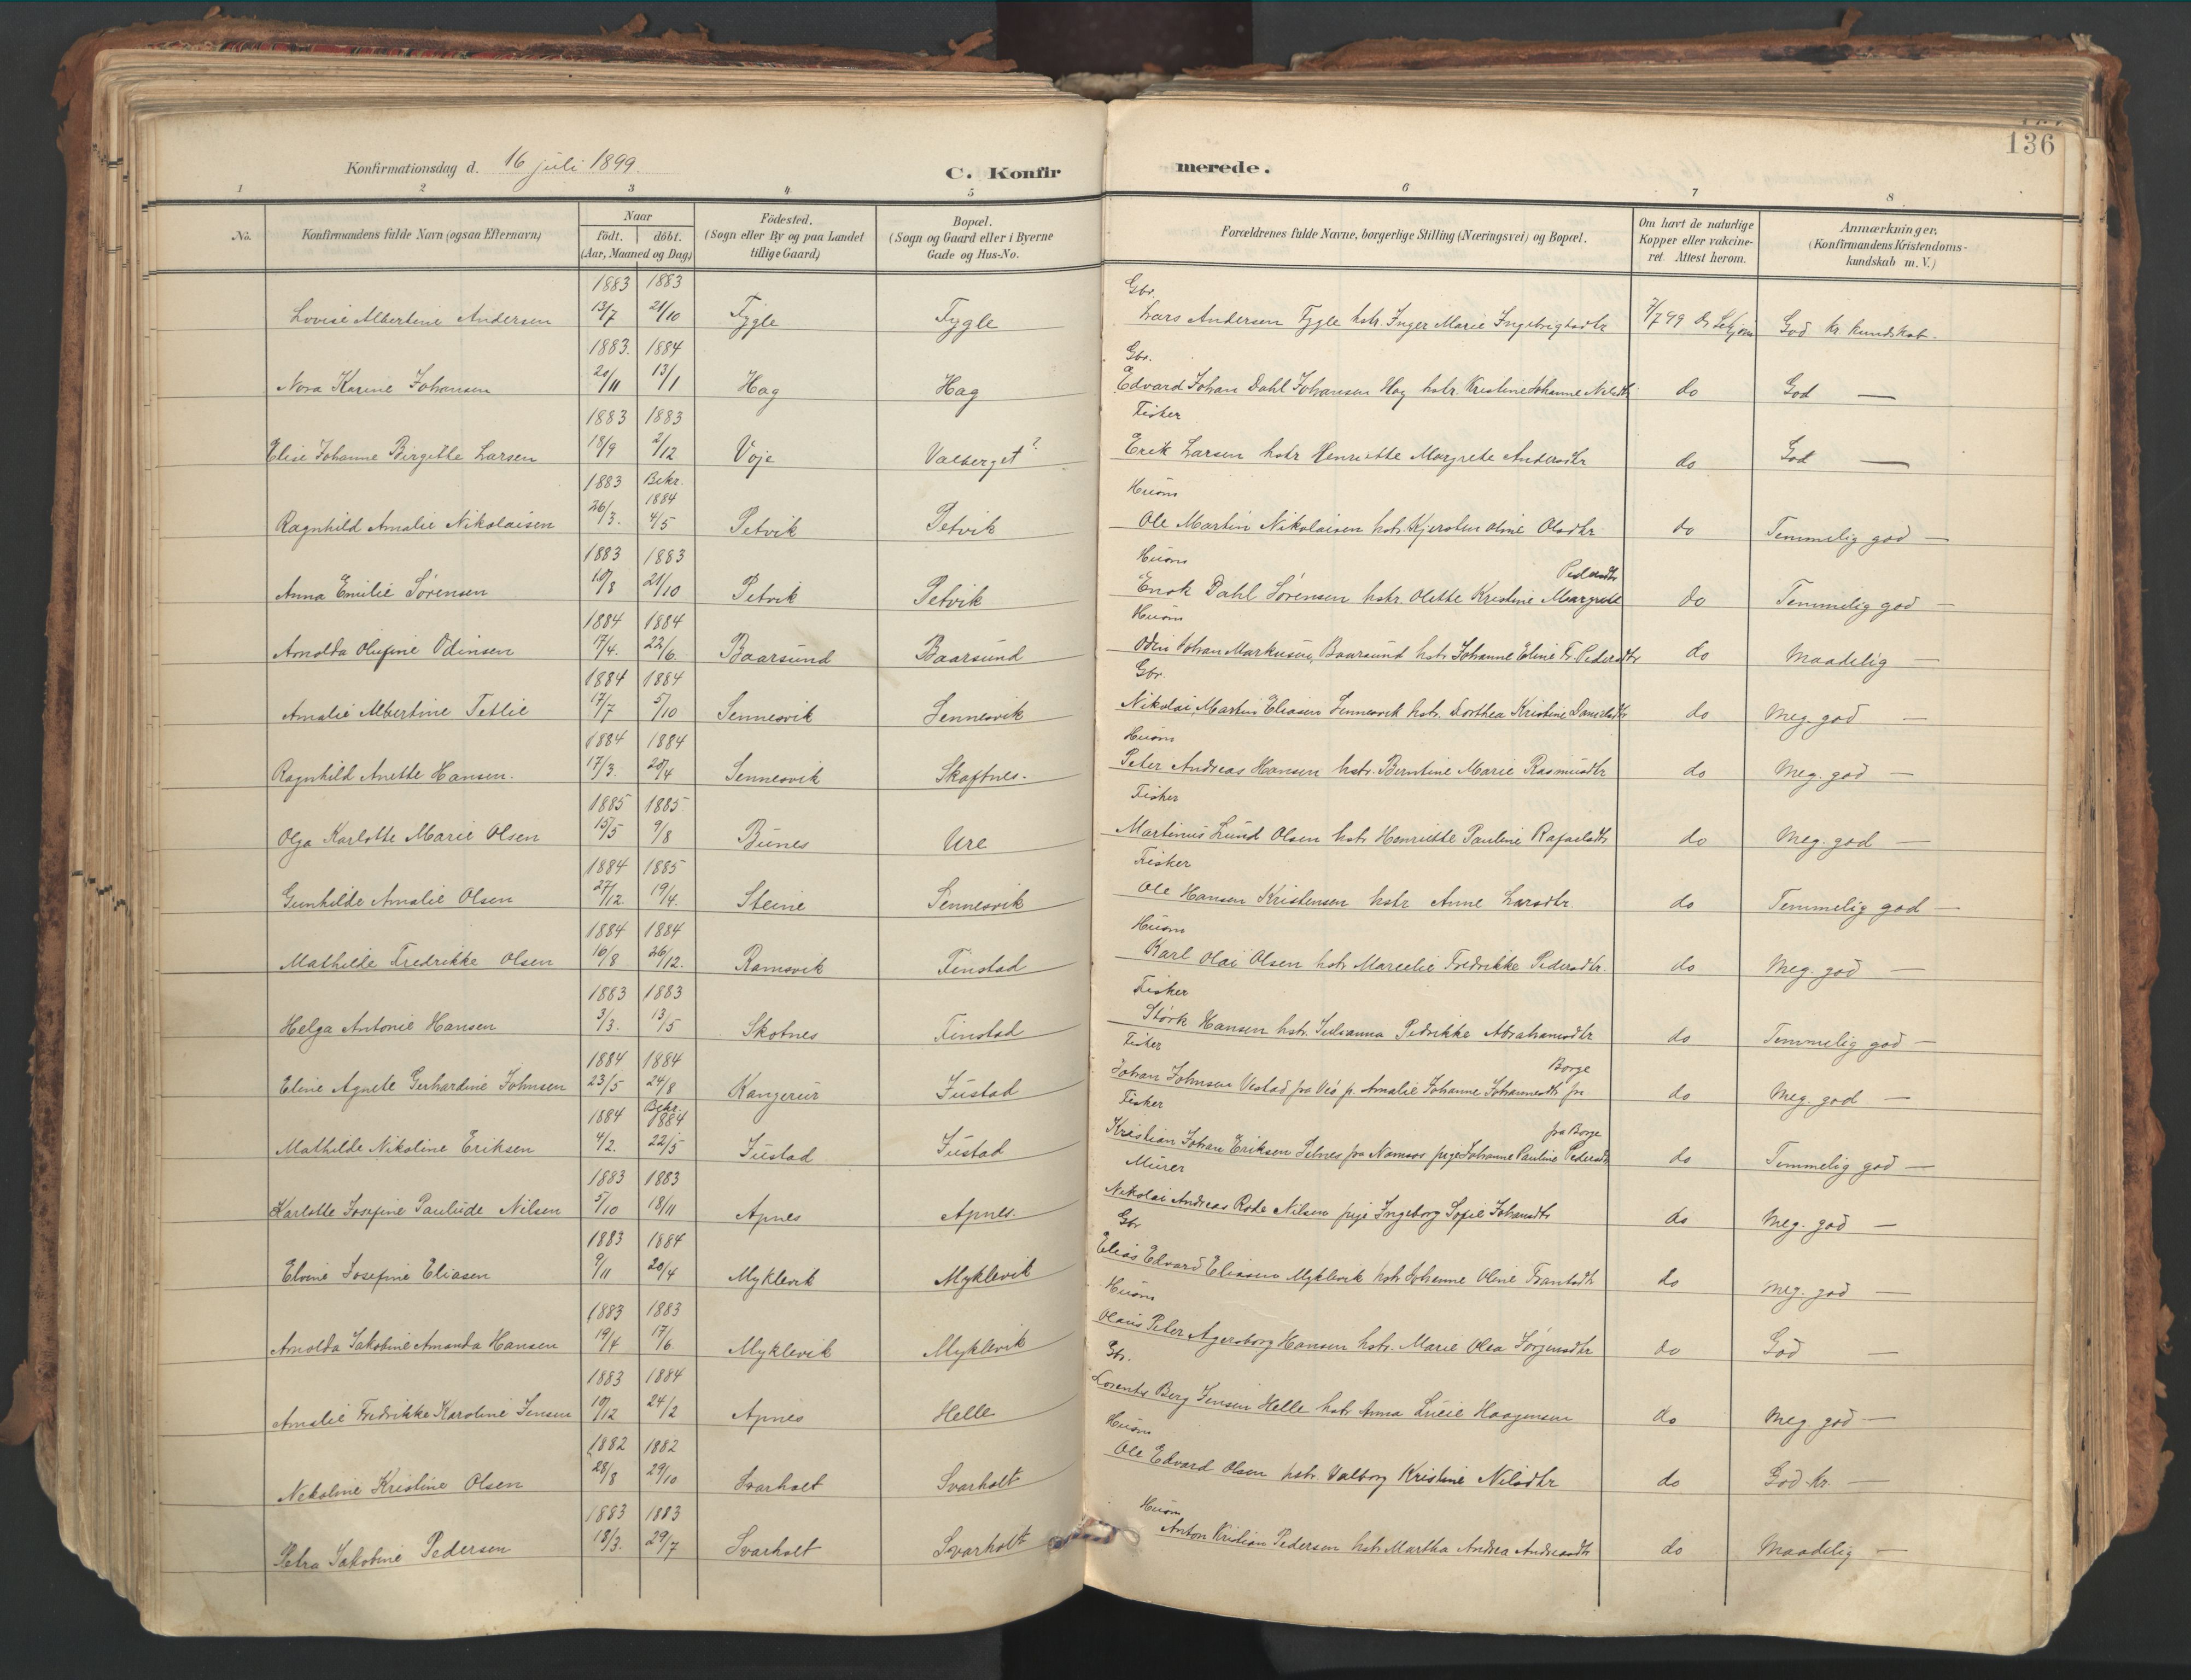 136
Konfirmationsdag d. 16 juli 1899.
C. Konfirmerede.
1 2 3 4 5 6 7 8
No.
Konfirmandens fulde Navn (ogsaa Efternavn)
Naar
født. døbt.
(Aar, Maaned og Dag)
Födested.
(Sogn eller By og paa Landet
tillige Gaard)
Bopæl.
(Sogn og Gaard eller i Byerne
Gade og Hus-No.
Forældrenes fulde Navne, borgerlige Stilling (Næringsvei) og Bopæl.
Om havt de naturlige
Kopper eller vakcine-
ret. Attest herom.
Anmærkninger.
(Konfirmandens Kristendoms-
kundskab m. V.)
1883 1883 Gbr.
Lovise Albertine Andersen 13/7 21/10 Tygle Tygle Lars Andersen Tygle hstr. Inger Marie Ingebrigtsdtr 7/7 99 God kr. kundskab.
1883. 1884 Gbr.
Nora Karine Johansen 20/11 13/1 Hag Hag Edvard Johan Dahl Johansen Hag hstr. Kristine Johanne Nilsdtr do God —
1883 1883 Fisker
Elise Johanne Birgitte Larsen 18/9 2/12 Voje Valberget? Erik Larsen hstr Henriette Margrete Andersdtr do God —
1883 Bekr. 1884 Husm
Ragnhild Amalie Nikolaisen 26/3. 4/5 Petvik Petvik Ole Martin Nikolaisen hstr. Kjersten Oline Olsdtr do Temmelig god —
1883 1883 Husm Pedersdtr
Anna Emilie Sørensen 10/8 21/10 Petvik Petvik Enok Dahl Sörensen hstr. Olette Kristine Margrete do Temmelig god —
1884 1884 Husm
Arnolda Olufine Odinsen 17/4. 22/6. Baarsund Baarsund Odin Johan Markusen, Baarsund hstr Johanne Eline Fr. Pedersdtr do Maadelig —
1884 1884 Gbr.
Amalie Albertine Tetlie 17/7 5/10 Sennesvik Sennesvik Nikolai Martin Eliasen Sennesvik hstr. Dorthea Kristine Danielsdtr do Meg. god —
1884 1884 Husm
Ragnhild Anette Hansen. 17/3. 20/4 Sennesvik Skaftnes. Peter Andreas Hansen hstr. Berntine Marie Rasmusdtr do Meg. god —
1885 1885 Fisker
Olga Karlotte Marie Olsen 15/5 9/8 Bunes Ure Martinus Lund Olsen hstr Henriette Pauline Rafaelsdtr do Meg. god —
1884 1885 Fisker
Gunhilde Amalie Olsen 27/12. 19/4. Steine Sennesvik Ole Hansen Kristensen hstr Anne Larsdtr. do Temmelig god —
1884 1884 Husm
Mathilde Fredrikke Olsen 16/8 26/12. Ramsvik Finstad Karl Olai Olsen hstr Marcelie Fredrikke Pedersdtr. do Meg. god —
1883 1883 Fisker
Helga Antonie Hansen 3/3. 13/5 Skotnes Finstad Störk Hansen hstr. Julianna Pedrikke Abrahamsdtr do Temmelig god —
1884 1884 Fisker Borge
Eline Agnete Gerhardine Johnsen 23/5 24/8 Kangerur Justad Johan Johnsen Vestad fra Veö p. Amalie Johanne Johannesdtr fra do Meg. god —
1884 Bekr. 1884 Fisker fra Borge
Mathilde Nikoline Eriksen 4/2. 22/5 Justad Justad Kristian Johan Eriksen Setnes fra Namsos pige Johanne Pauline Pedersdtr do Temmelig god —
1883 1883 Murer
Karlotte Josefine Paulude Nilsen 5/10 18/11 Apnes Apnes. Nikolai Andreas Rode Nilsen pige Ingeborg Sofie Johansdtr do Meg. god —
1883 1884 Gbr
Elvine Josefine Eliasen 9/11 20/4 Myklevik Myklevik Elias Edvard Eliasen Myklevik hstr Johanne Oline Frantsdtr do Meg. god —
1883 1883 Husm
Arnolda Jakobine Amanda Hansen 19/4 17/6 Myklevik Myklevik Olaus Peter Agersborg Hansen hstr. Marie Olea Jörgensdtr do God —
1883 1884 Gbr.
Amalie Fredrikke Karoline Jensen 10/12 24/2 Apnes Helle Lorents Berg Jensen Helle hstr Anna Lucie Haagensen do Meg. god —
1882 1882 Husm
Nekoline Kristine Olsen 28/8 29/10 Svarholt Svarholt Ole Edvard Olsen hstr. Valborg Kristine Nilsdtr do God kr. —
1883 1883 Husm
Petra Jakobine Pedersen 18/3. 29/7 Svarholt Svarholt Anton Kristian Pedersen hstr Martha Andrea Andreasdtr do Maadelig —